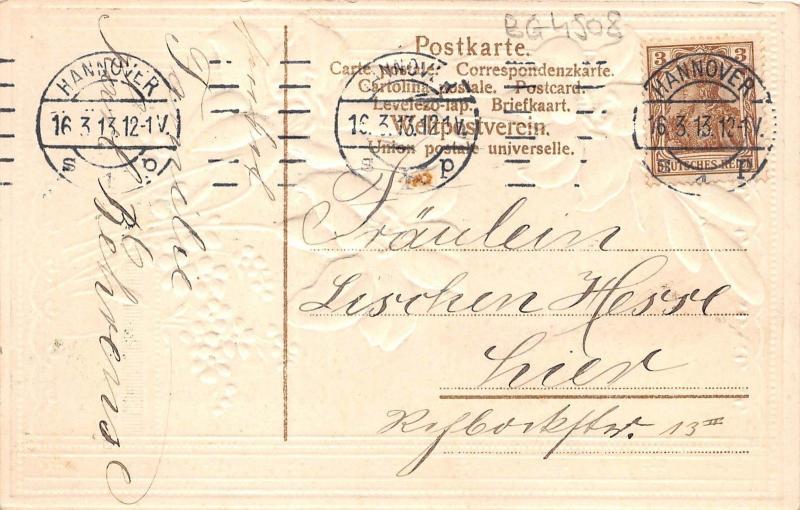 BG4508
Postkarte.
Carte postale. Correspondenzkarte.
Cartolina postale. Postcard.
Levelező-lap. Briefkaart.
Weltpostverein.
Union postale universelle.
HANNOVER
16.3.13.12-1V.
HANNOVER
16.3.13.12-1V.
HANNOVER
16.3.13.12-1V.
3 3
DEUTSCHES REICH
Familie
Behrens
Fräulein
Lischen Hesse
hier
13 III